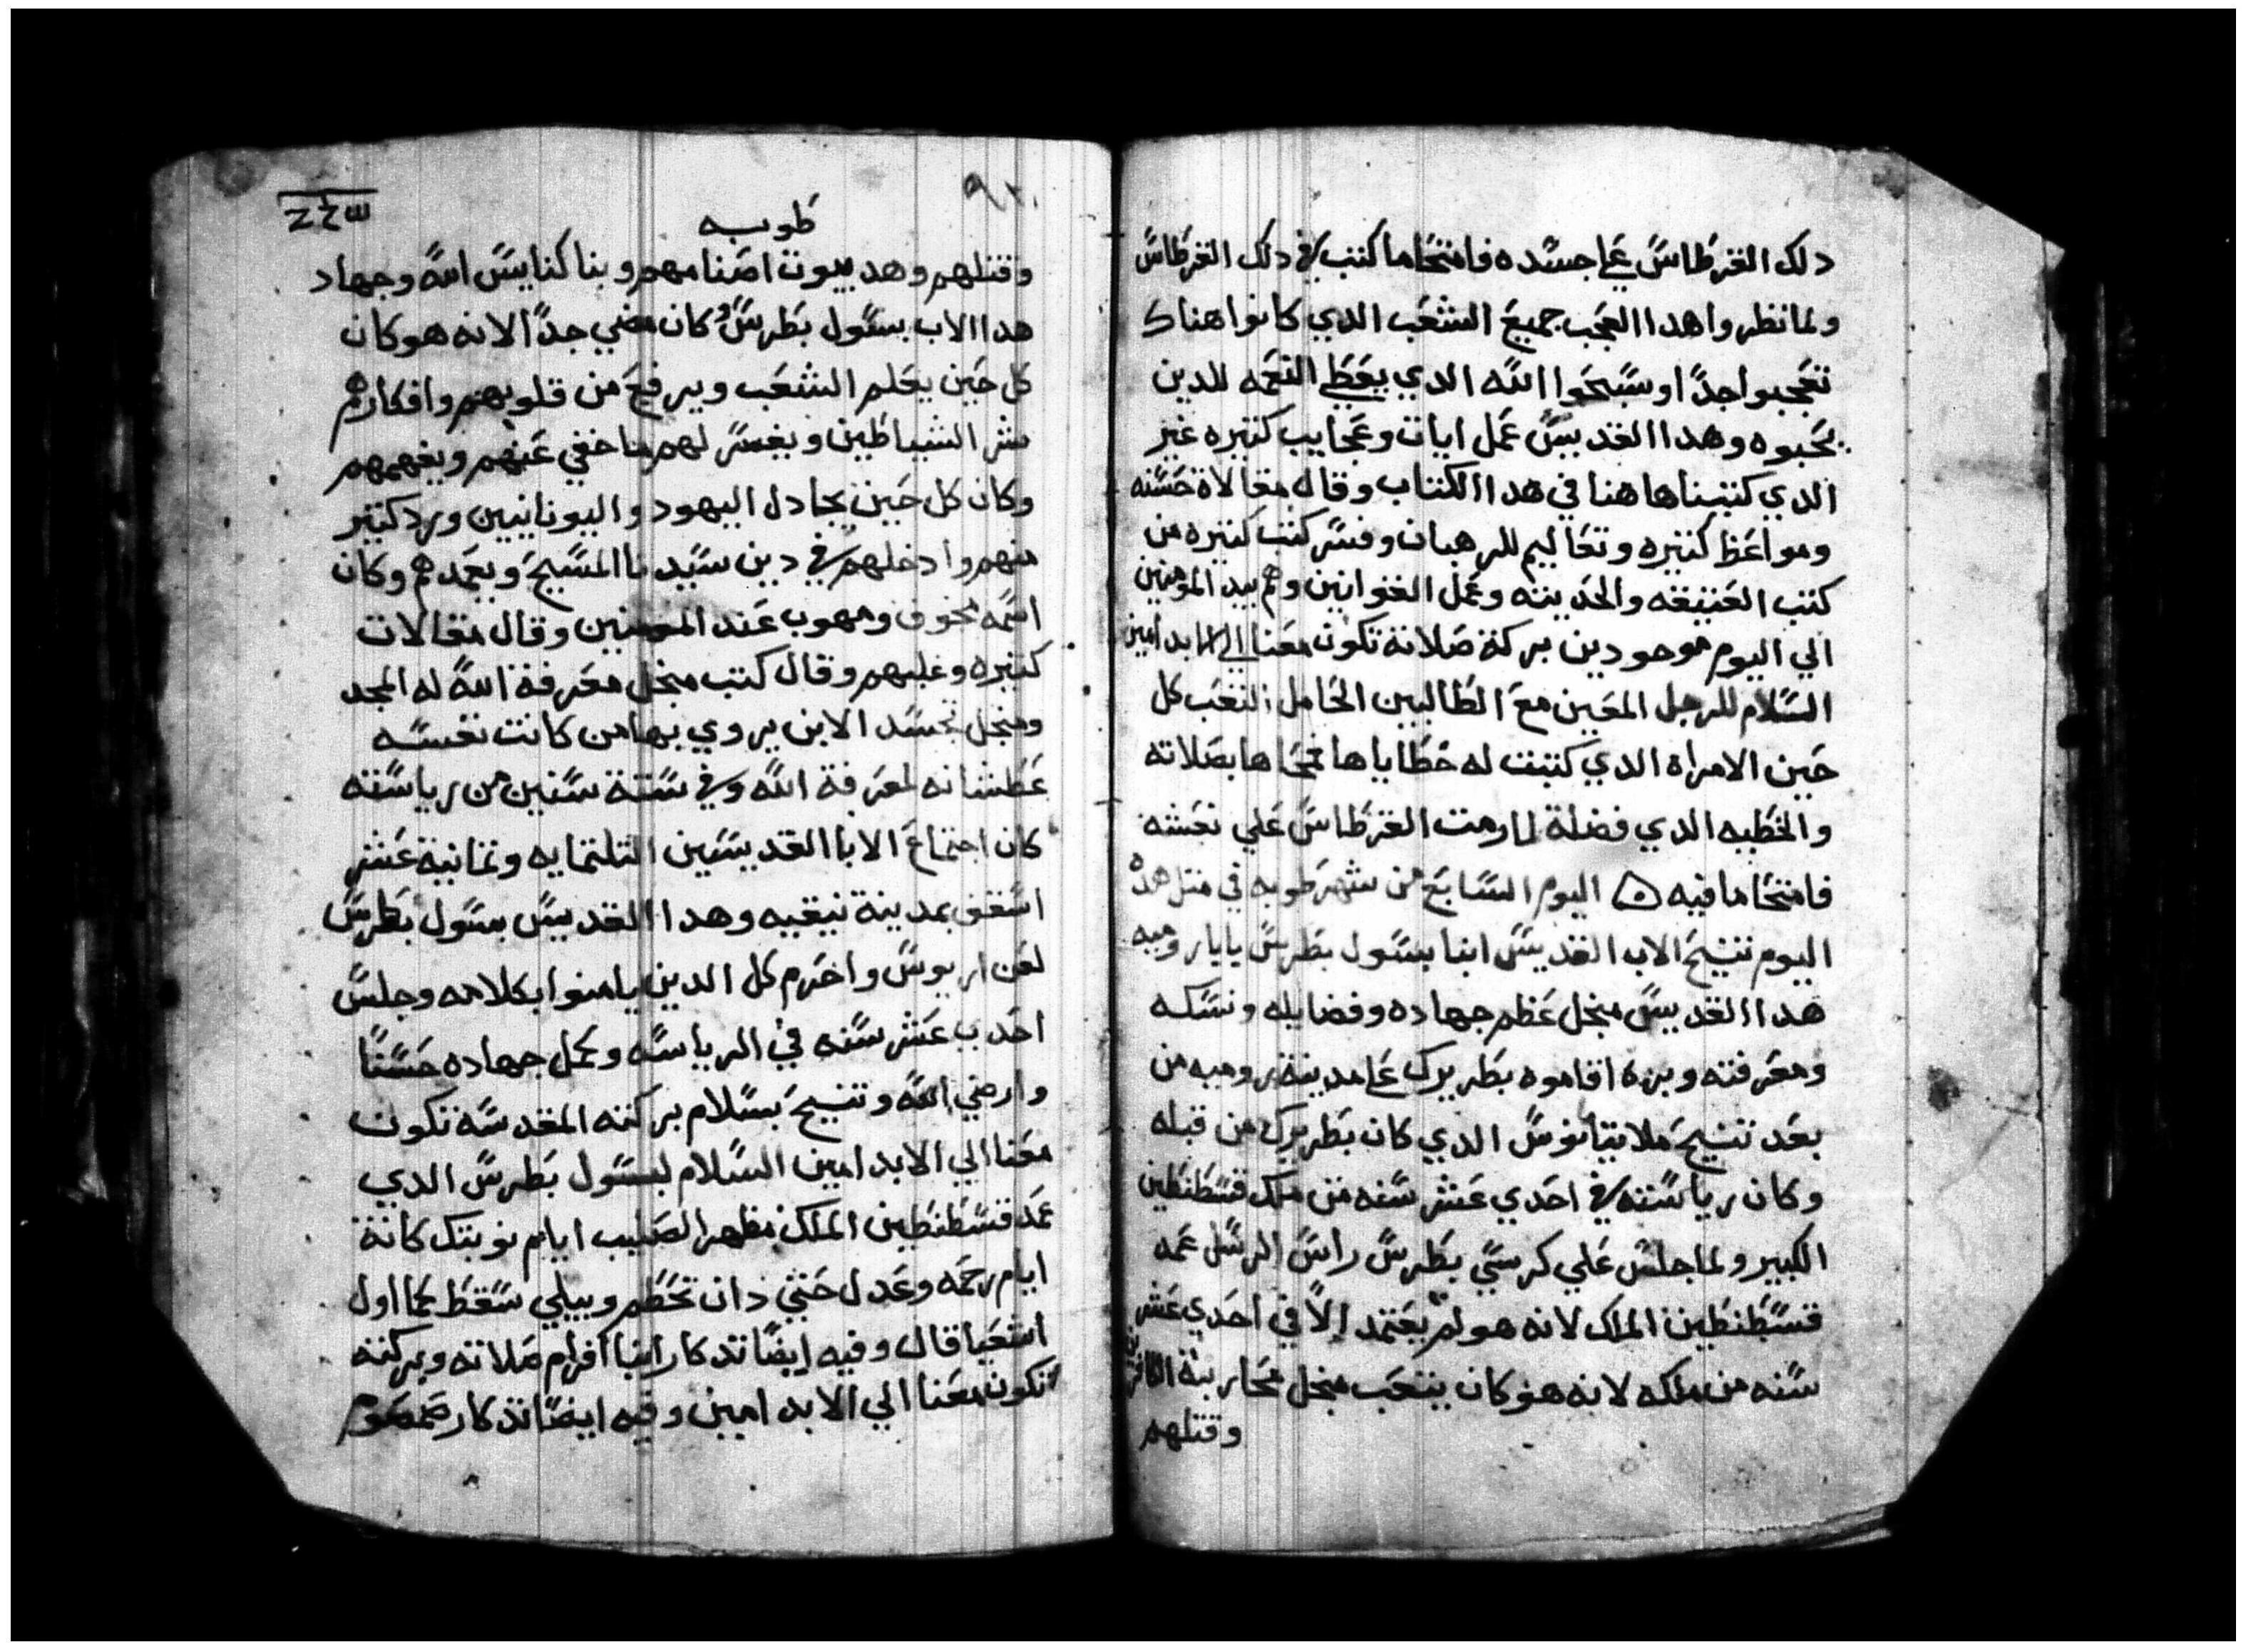 دلك القرطاس علي جسده فامتحا ما كتب في دلك القرطاس
ولما نظروا هدا العجب جميع الشعب الدي كانوا هناك
تعجبوا جدًا وسبحوا الله الدي يعطي النعمه للدين
يحبوه وهدا القديس عمل ايات وعجايب كتيره غير
الدي كتبناها هنا في هدا الكتاب وقال مقالاة حسنه
ومواعظ كتيره وتعاليم للرهبان وفسر كتب كتيره من
كتب العتيقه والحديته وعمل القوانين وهم بيد المومنين
الي اليوم موجودين بركة صلاته تكون معنا الي الابد امين
السلام للرجل المعين مع الطالبين الحامل التعب كل
حين الامراه الدي كتبت له خطاياها محاها بصلاته
والخطيه الدي فضلة لما رمت القرطاس علي نعشه
فامتحا ما فيه اليوم السابع من شهر طوبه في متل هده
اليوم تنيح الاب القديس ابنا بسول بطرس بابا روميه
هدا القديس منجل عظم جهاده وفضايله ونسكه
ومعرفته وبره اقاموه بطريرك علي مدينة روميه من
بعد تنيح ملانيتانوس الدي كان بطريرك من قبله
وكان رياسته في احدي عشر سنه من ملك قسطنطين
الكبير ولما جلس علي كرسي بطرس راس الرسل عمد
قسطنطين الملك لانه هو لم يعتمد الا في احدي عشر
سنه من ملكه لانه هو كان يتعب منجل محاربة الكافرين
وقتلهم
٩٢
طوبه
وقتلهم وهد بيوت اصنامهم وبنا كنايس الله وجهاد
هدا الاب بسول بطرس وكان مضي جدًا لانه هو كان
كل حين يعلم الشعب ويرفع من قلوبهم وافكارهم
شر الشياطين ويفسر لهم ما خفي عنهم ويفهمهم
وكان كل حين يجادل اليهود واليونانيين ورد كتير
منهم وادخلهم في دين سيدنا المسيح ويعمدهم وكان
اسمه مخوف ومهوب عند المومنين وقال مقالات
كتيره وغلبهم وقال كتب منجل معرفة الله له المجد
ومنجل تجسد الابن يروي بها من كانت نفسه
عطشانه لمعرفة الله وفي ستة سنين من رياسته
كان اجتماع الابا القديسين التلتمايه وتمانية عشر
اسقف بمدينة نيقيه وهدا القديس بسول بطرس
لعن اريوس واحرم كل الدين يامنوا بكلامه وجلس
احدب عشر سنه في الرياسه وعمل جهاده حسنًا
وارضي الله وتنيح بسلام بركته المقدسه تكون
معنا الي الابد امين السلام لبسول بطرس الدي
عمد قسطنطين الملك مظهر الصليب ايام نوبتك كانة
ايام رحمه وعدل حتي دان تحطم وبيلي سقط كما اول
اشعيا قال وفيه ايضًا تدكار ابنا افرام صلاته وبركته
تكون معنا الي الابد امين وفيه ايضًا تدكار